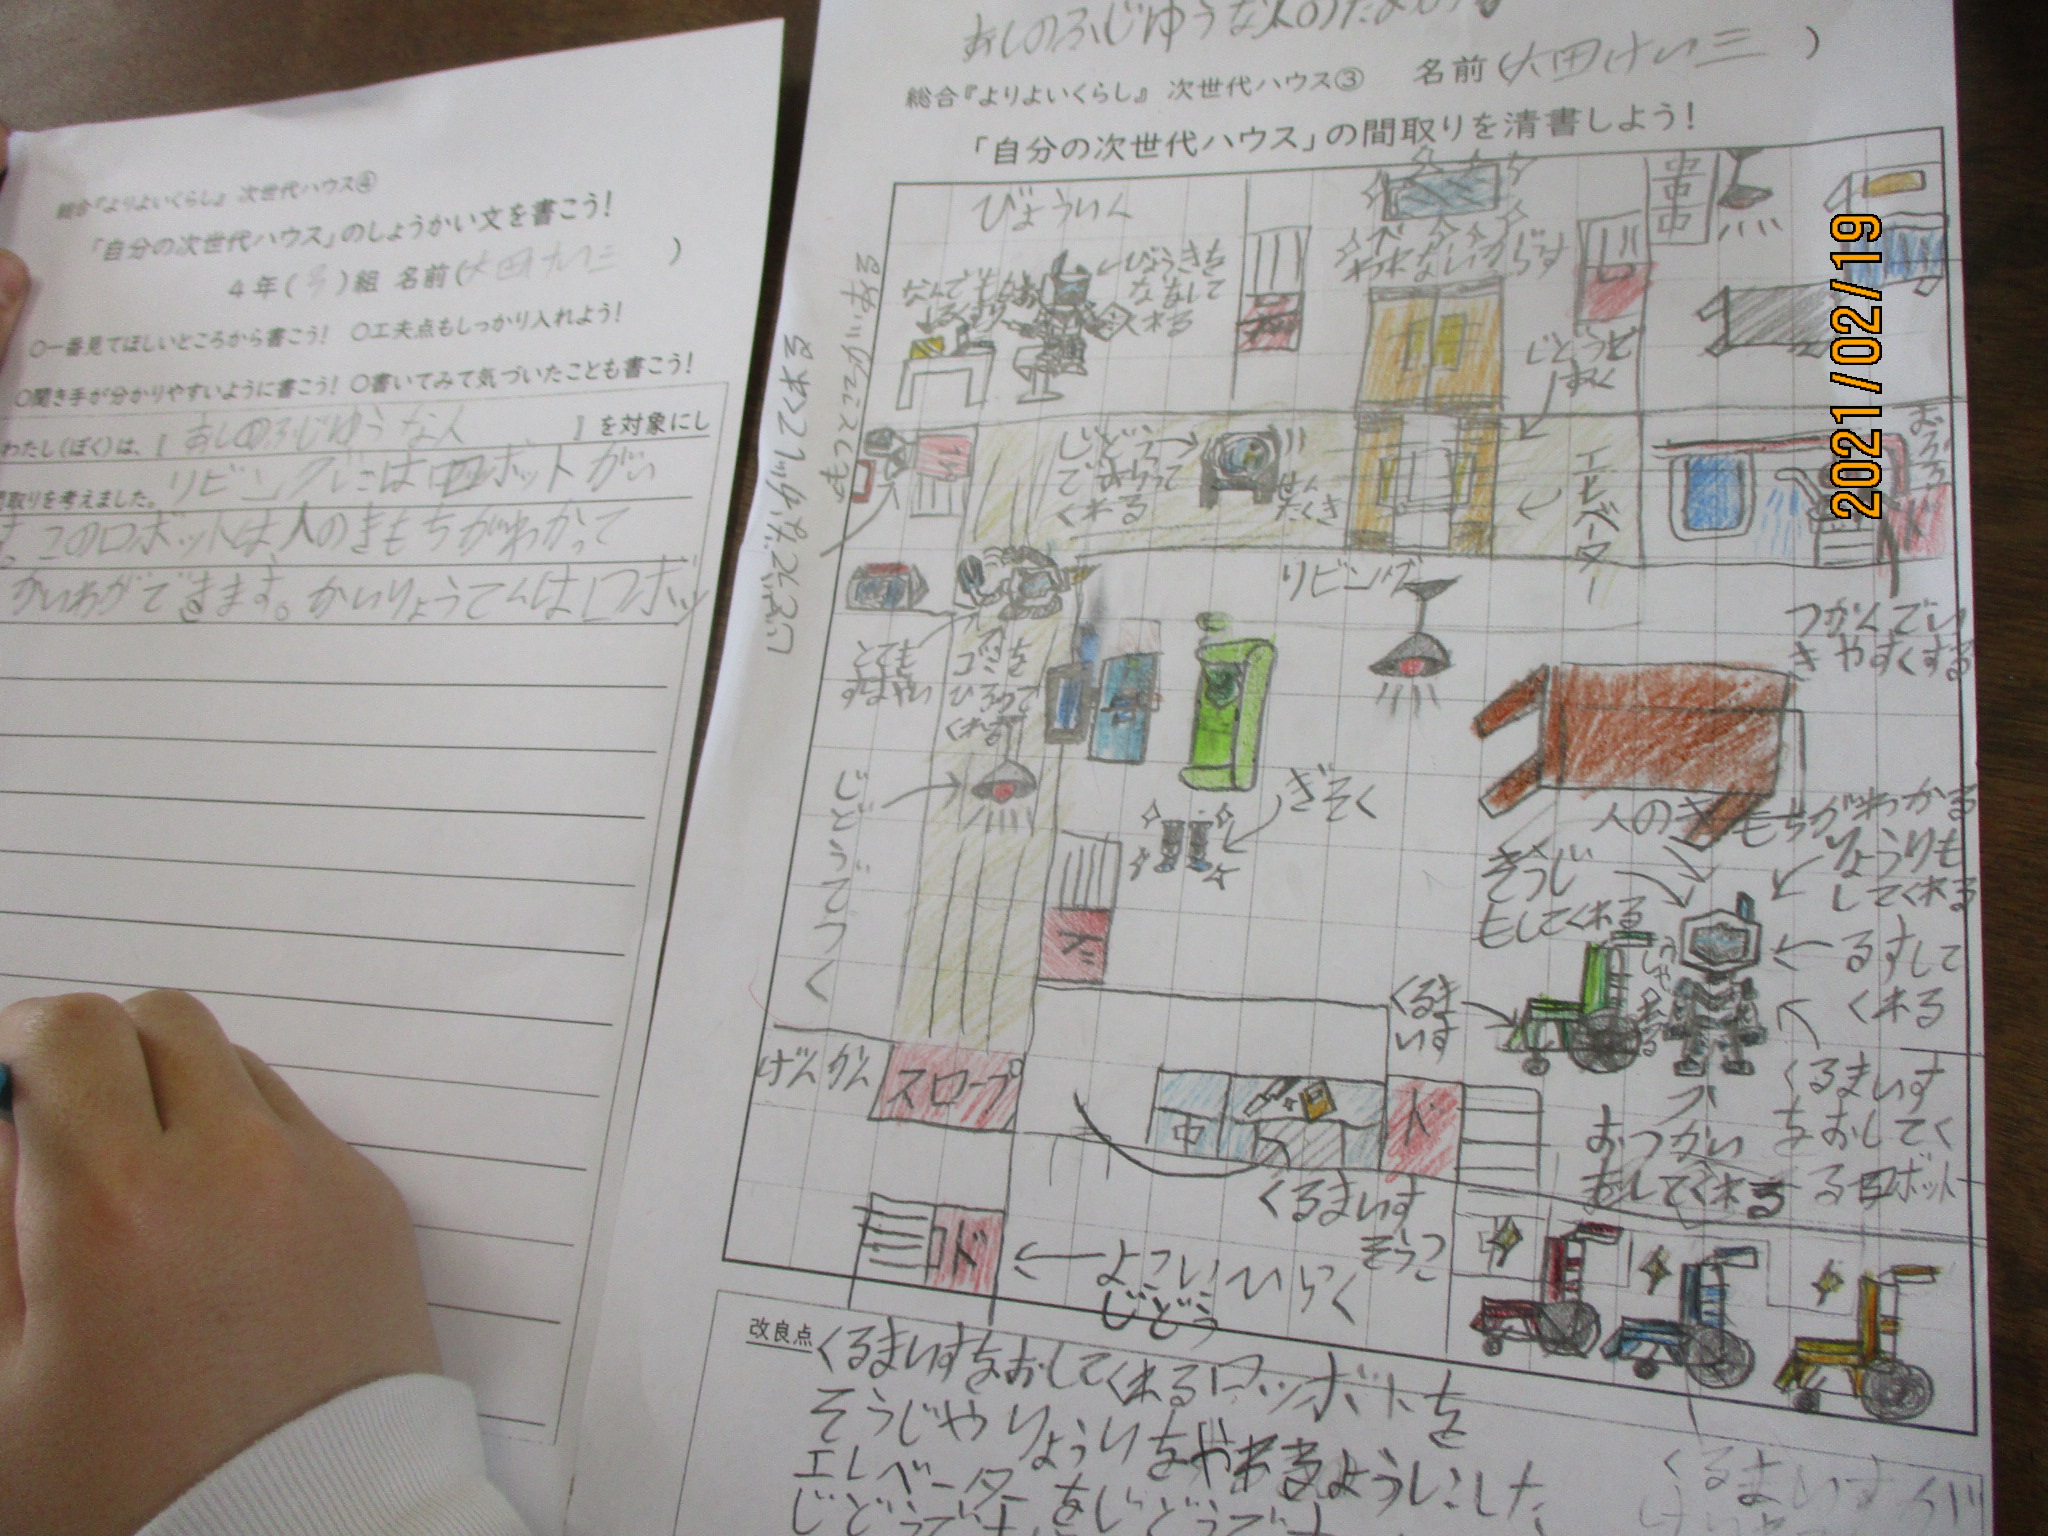 総合『よりよいくらし』 次世代ハウス④
「自分の次世代ハウス」のしょうかい文を書こう！
4年( 3 )組 名前(大田けい三 )
○一番見てほしいところから書こう！ ○工夫点もしっかり入れよう！
○聞き手が分かりやすいように書こう！ ○書いてみて気づいたことも書こう！
わたし(ぼく)は、『 あしのふじゆうな人 』を対象にし
間取りを考えました。リビングにはロボットがい
す。このロボットは、人のきもちがわかって
かいわができます。かいりょうてんはロボッ
あしのふじゆうな人のため
総合『よりよいくらし』 次世代ハウス③ 名前(大田けい三 )
「自分の次世代ハウス」の間取りを清書しよう！
びょういん
びょうきを
なおして
くれる
われないがらす
じどうで
エレベーター
じどう
で
くれる
せん
たくき
おふろ
つかんでい
きやすくする
リビング
とても
すばやい
ゴミを
ひろって
くれる
じどうでつく
ぎそく
人のきもちがわかる
そうじ
もしてくれる
りょうりも
してくれる
るすして
くれる
くるま
いす
くるまいす
をおしてく
るロボット
おつかい
もしてくれる
げんかん
スロープ
ド
中
ド
くるまいす
そうこ
ド
よこにひらく
じどう
改良点
くるまいすをおしてくれるロボットを
そうじやりょうりをやれるようにした
エレベーターをじどうで
くるまいす
2021/02/19